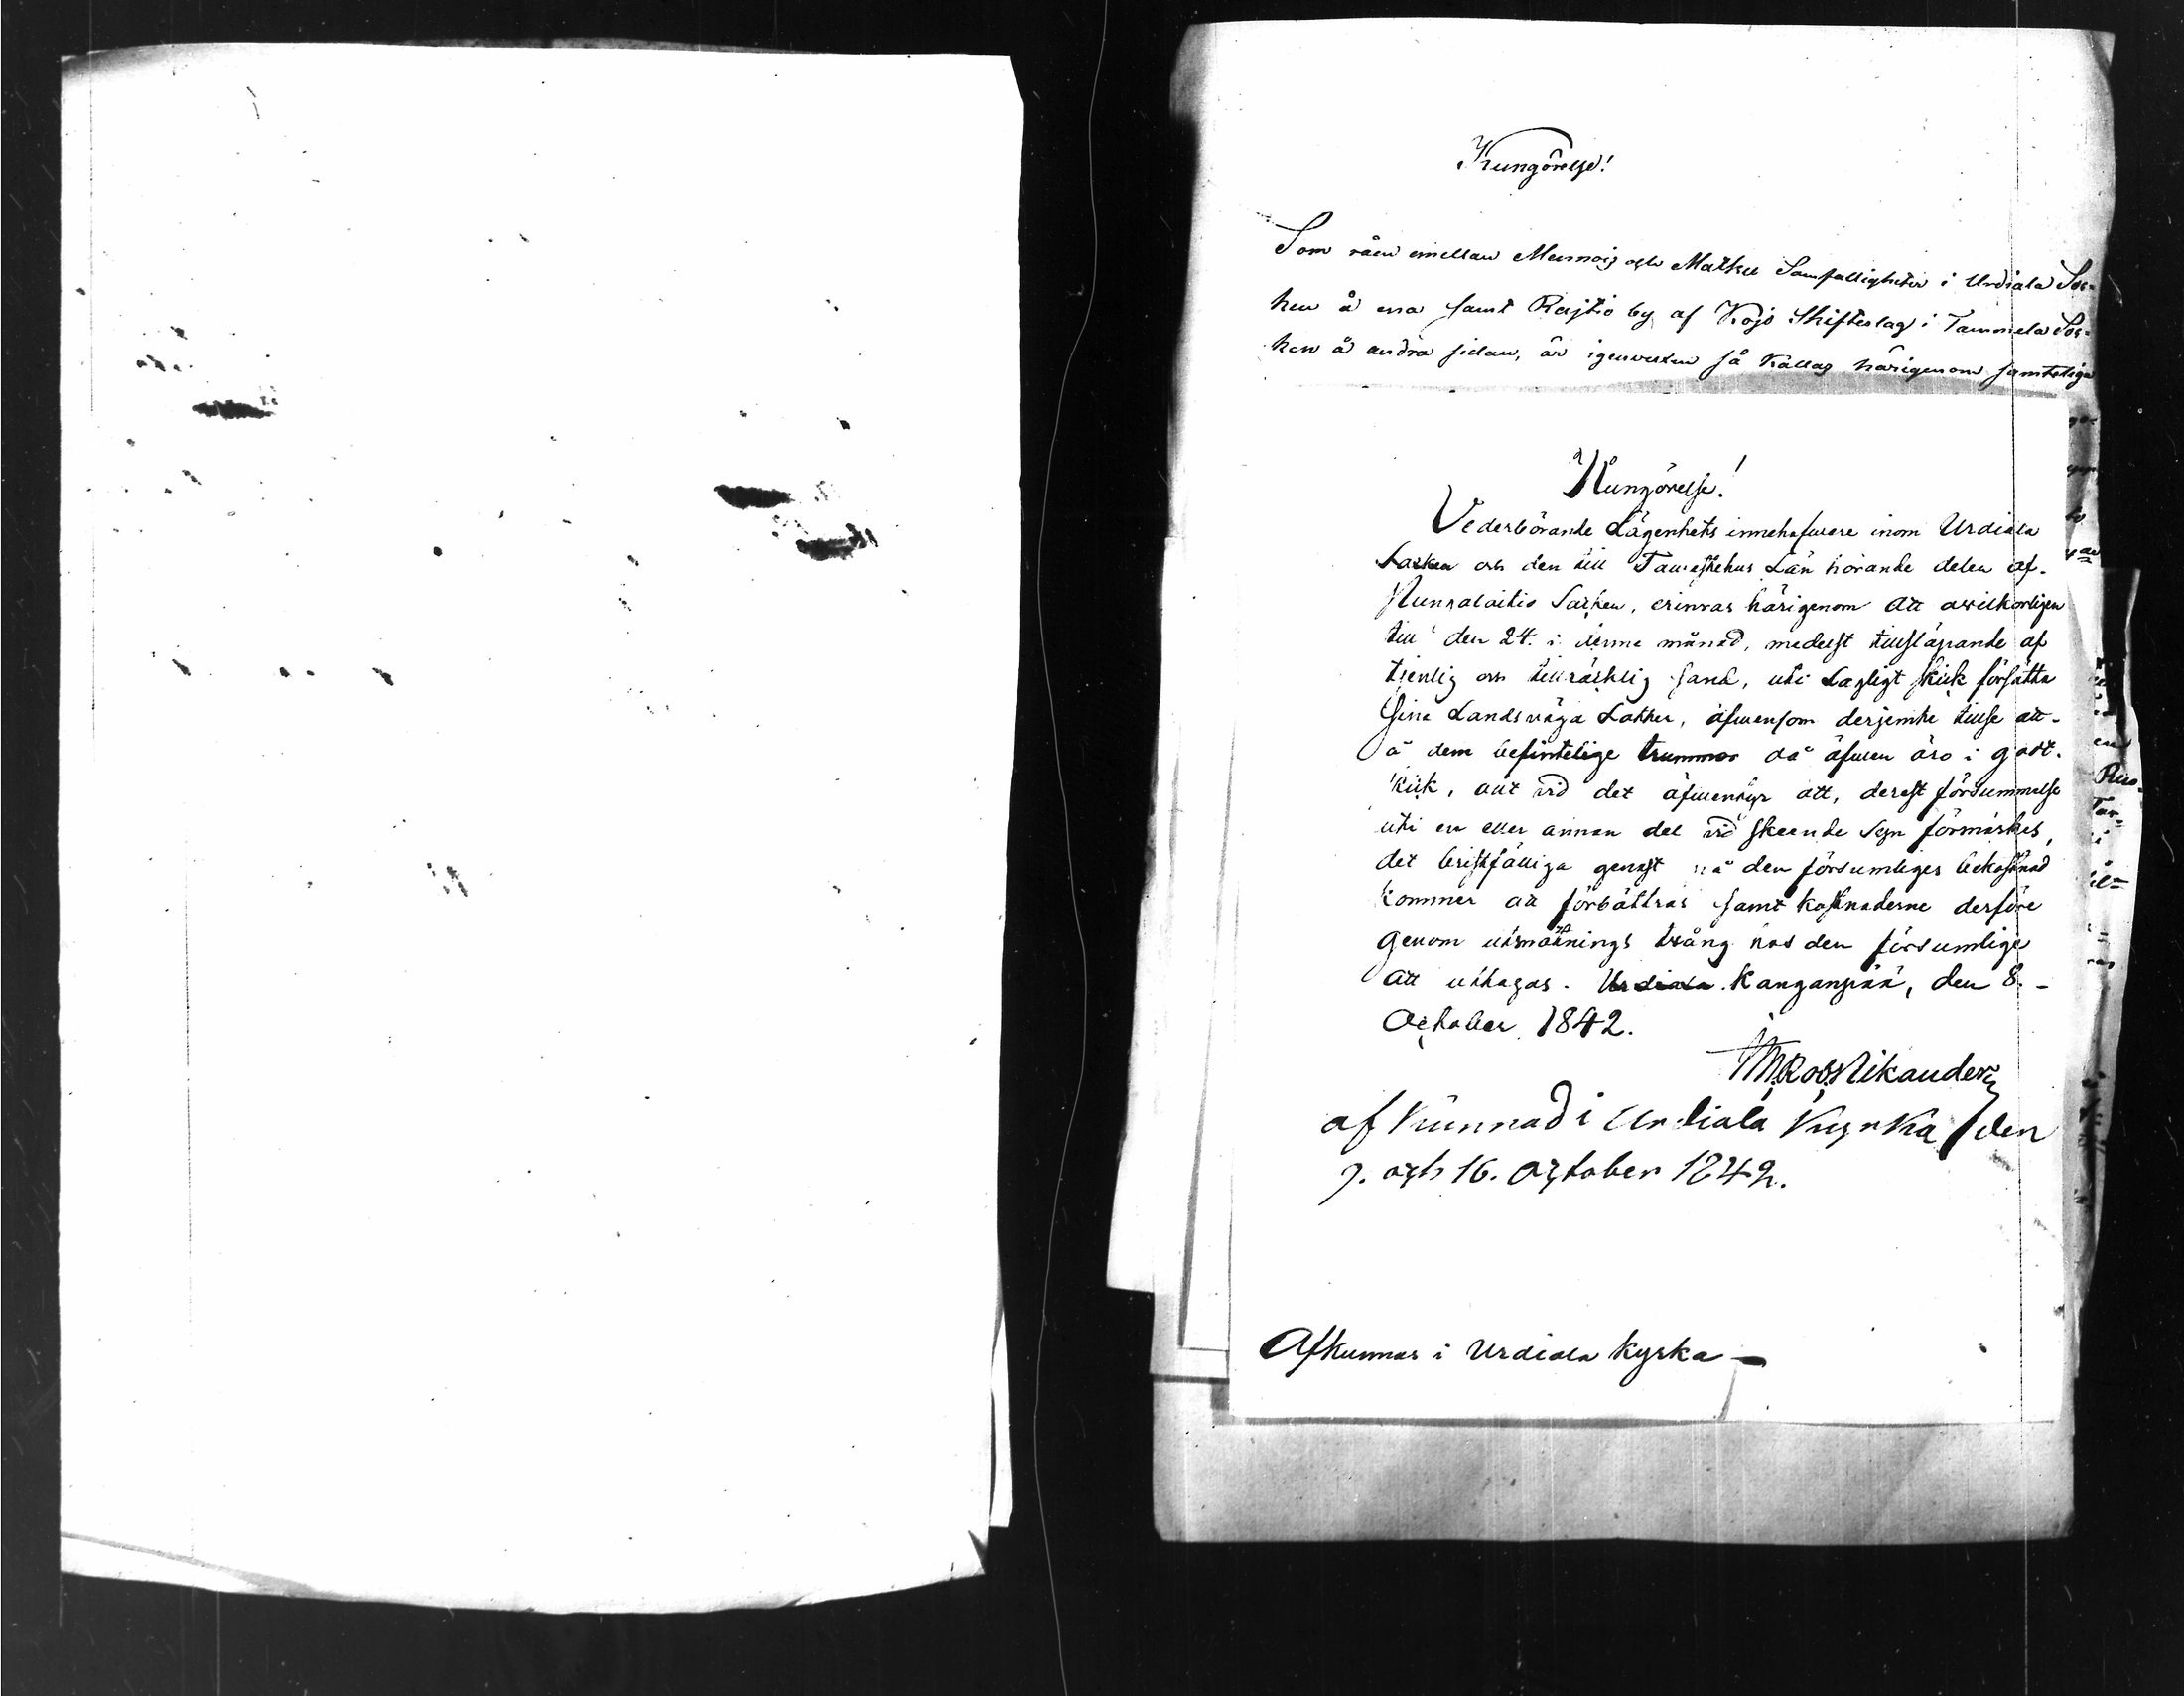 Kungörelse!
Som råen emellan Mennois och Matku Samfälligheter i Urdiala Soc-
ken å ena samt Rajtio by af Kojo Skifteslag i Tammela Soc-
ken å andra sidan, är igenvuxen så kallas härigenom samtelige
Kungörelse!
Vederbörande Lägenhets innehafware inom Urdiala
Socken och den till Tawastehus Län hörande delen af
Punkalaitio Socken, erinras härigenom att owilkorligen
till den 24. i denne månad, medelst tillsläpande af
tjenlig och tillräcklig sand, uti Lagligt skick försätta
sina Landsväga Lotter, äfwensom derjemte tillse att
å dem befintelige trummor då äfwen äro i godt
skick, allt wid det äfwentyr att, derest försummelse
uti en eller annan del wid skeende Syn förmärkes,
det bristfälliga genast på den försumliges bekostnad
kommer att förbättras samt kostnaderne derföre
genom utmätnings twång hos den försumlige
att uttagas. Urdiala Kanganpää, den 8.
October 1842.
Roos Nikander
af Kunnad i Urdiala Kyrka den
9. och 16. October 1842.
Afkunnas i Urdiala kyrka